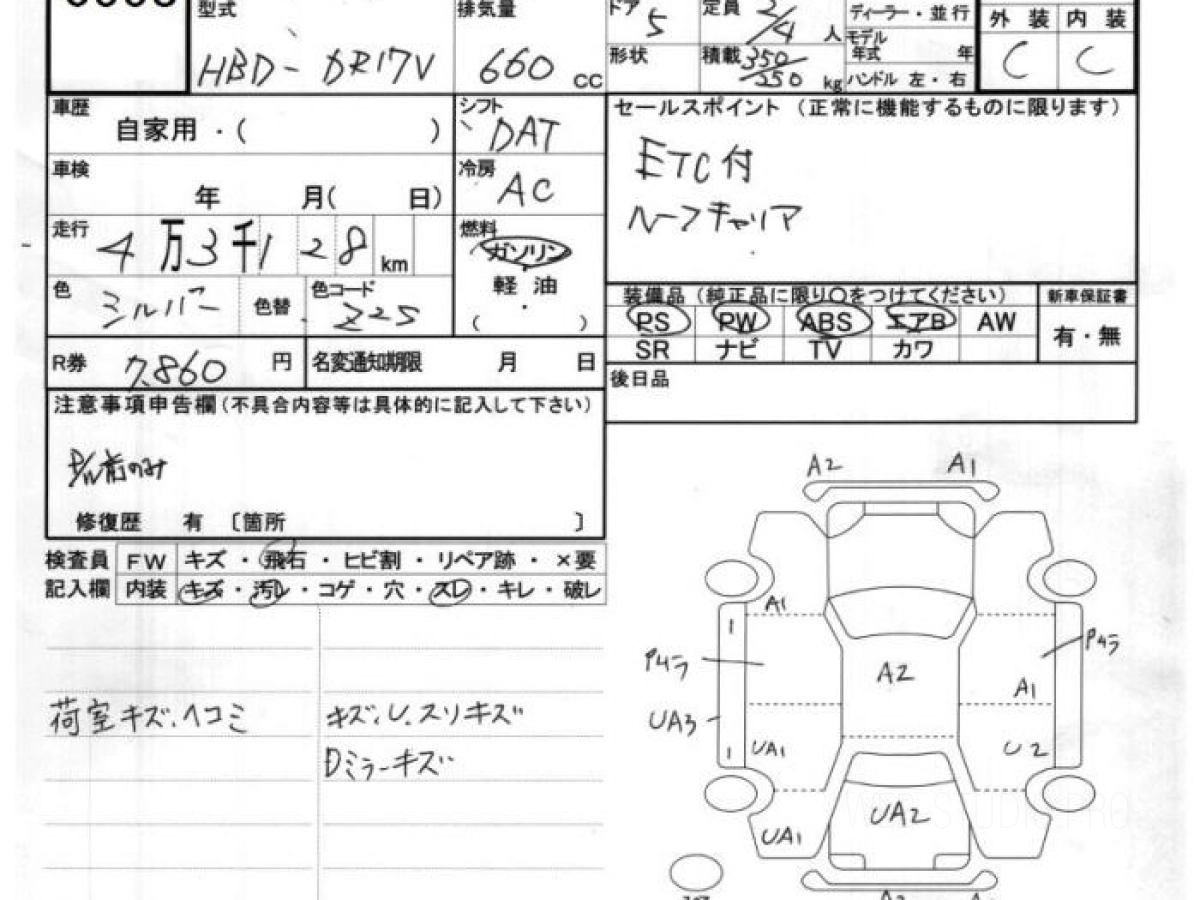 型式 排気量 ドア 5 定員 2/4 人 ディーラー・並行 外装 内装
HBD-DR17V 660 CC 形状 積載 350/250 kg モデル年式 年 C C
ハンドル 左・右
車歴 自家用・( )
シフト DAT
セールスポイント (正常に機能するものに限ります)
ETC付
ルーフキャリア
車検 年 月( 日)
冷房 AC
走行 4万3千128km
燃料 ガソリン
軽油
・
( )
色 シルバー 色替 色コード Z2S
装備品(純正品に限り○をつけてください) 新車保証書
PS PW ABS エアB AW 有・無
SR ナビ TV カワ
R券 7,860 円 名変通知期限 月 日
後日品
注意事項申告欄(不具合内容等は具体的に記入して下さい)
P/W前のみ
修復歴 有 〔箇所 〕
検査員 FW キズ・飛石・ヒビ割・リペア跡・×要
記入欄 内装 キズ・汚レ・コゲ・穴・スレ・キレ・破レ
荷室キズ、ヘコミ
キズ、U、スリキズ
Dミラーキズ
A2 A1
A1
1
Pムラ Pムラ
A2
A1
UA3
1 UA1 U2
UA2
UA1